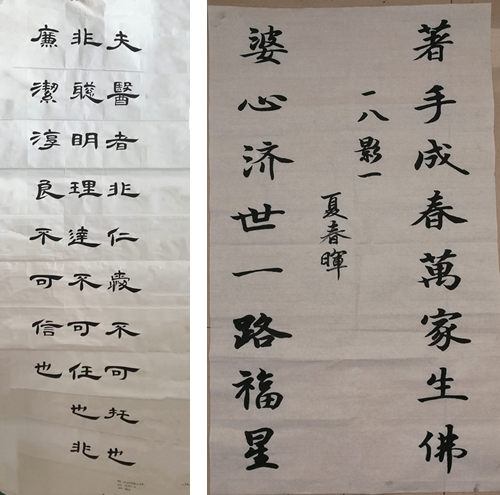 夫醫者非仁愛不可托也
非聰明理達不可任也非
廉潔淳良不可信也
著手成春萬家生佛
一八影一
夏春暉
婆心济世一路福星